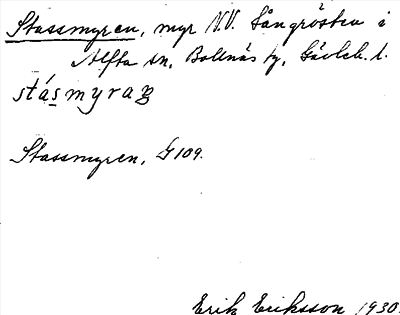 Stassmyren, myr N.V. Långrösten i
Alfta sn, Bollnäs tg, Gävleb. l.
stásmyraꞥ
Stassmyren, G109.
Erik Eriksson 1930.